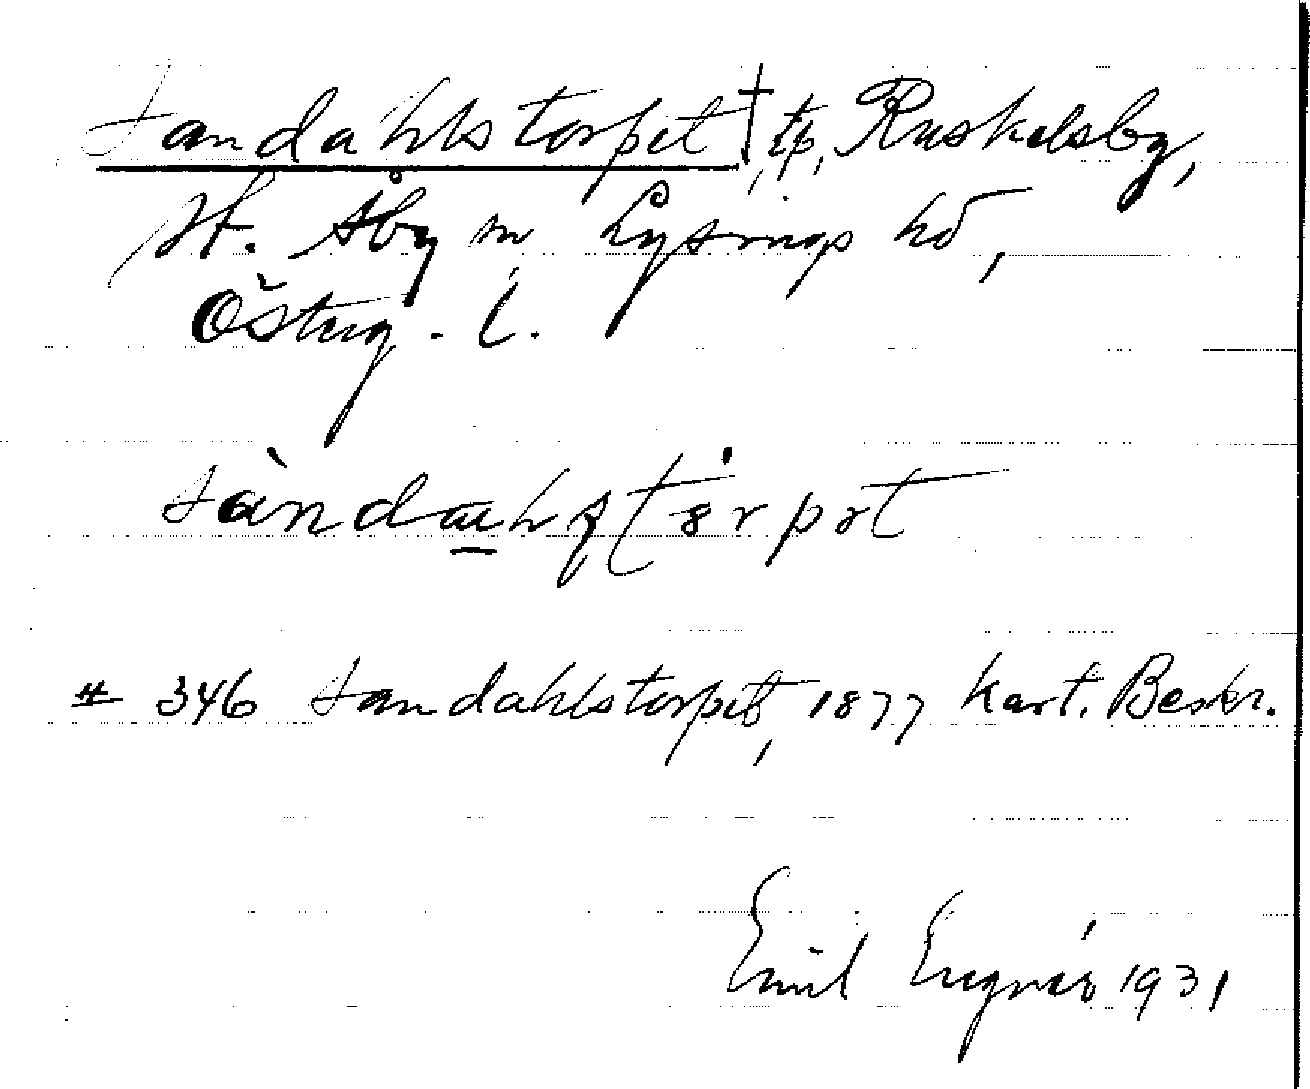 Sandahlstorpet † tp, Ruskelsby,
St. Åby sn, Lysings hd,
Österg. l.
sàndɑhʂtɵrpət
# 346 Sandahlstorpet, 1877 Kart. Beskr.
Emil 1931